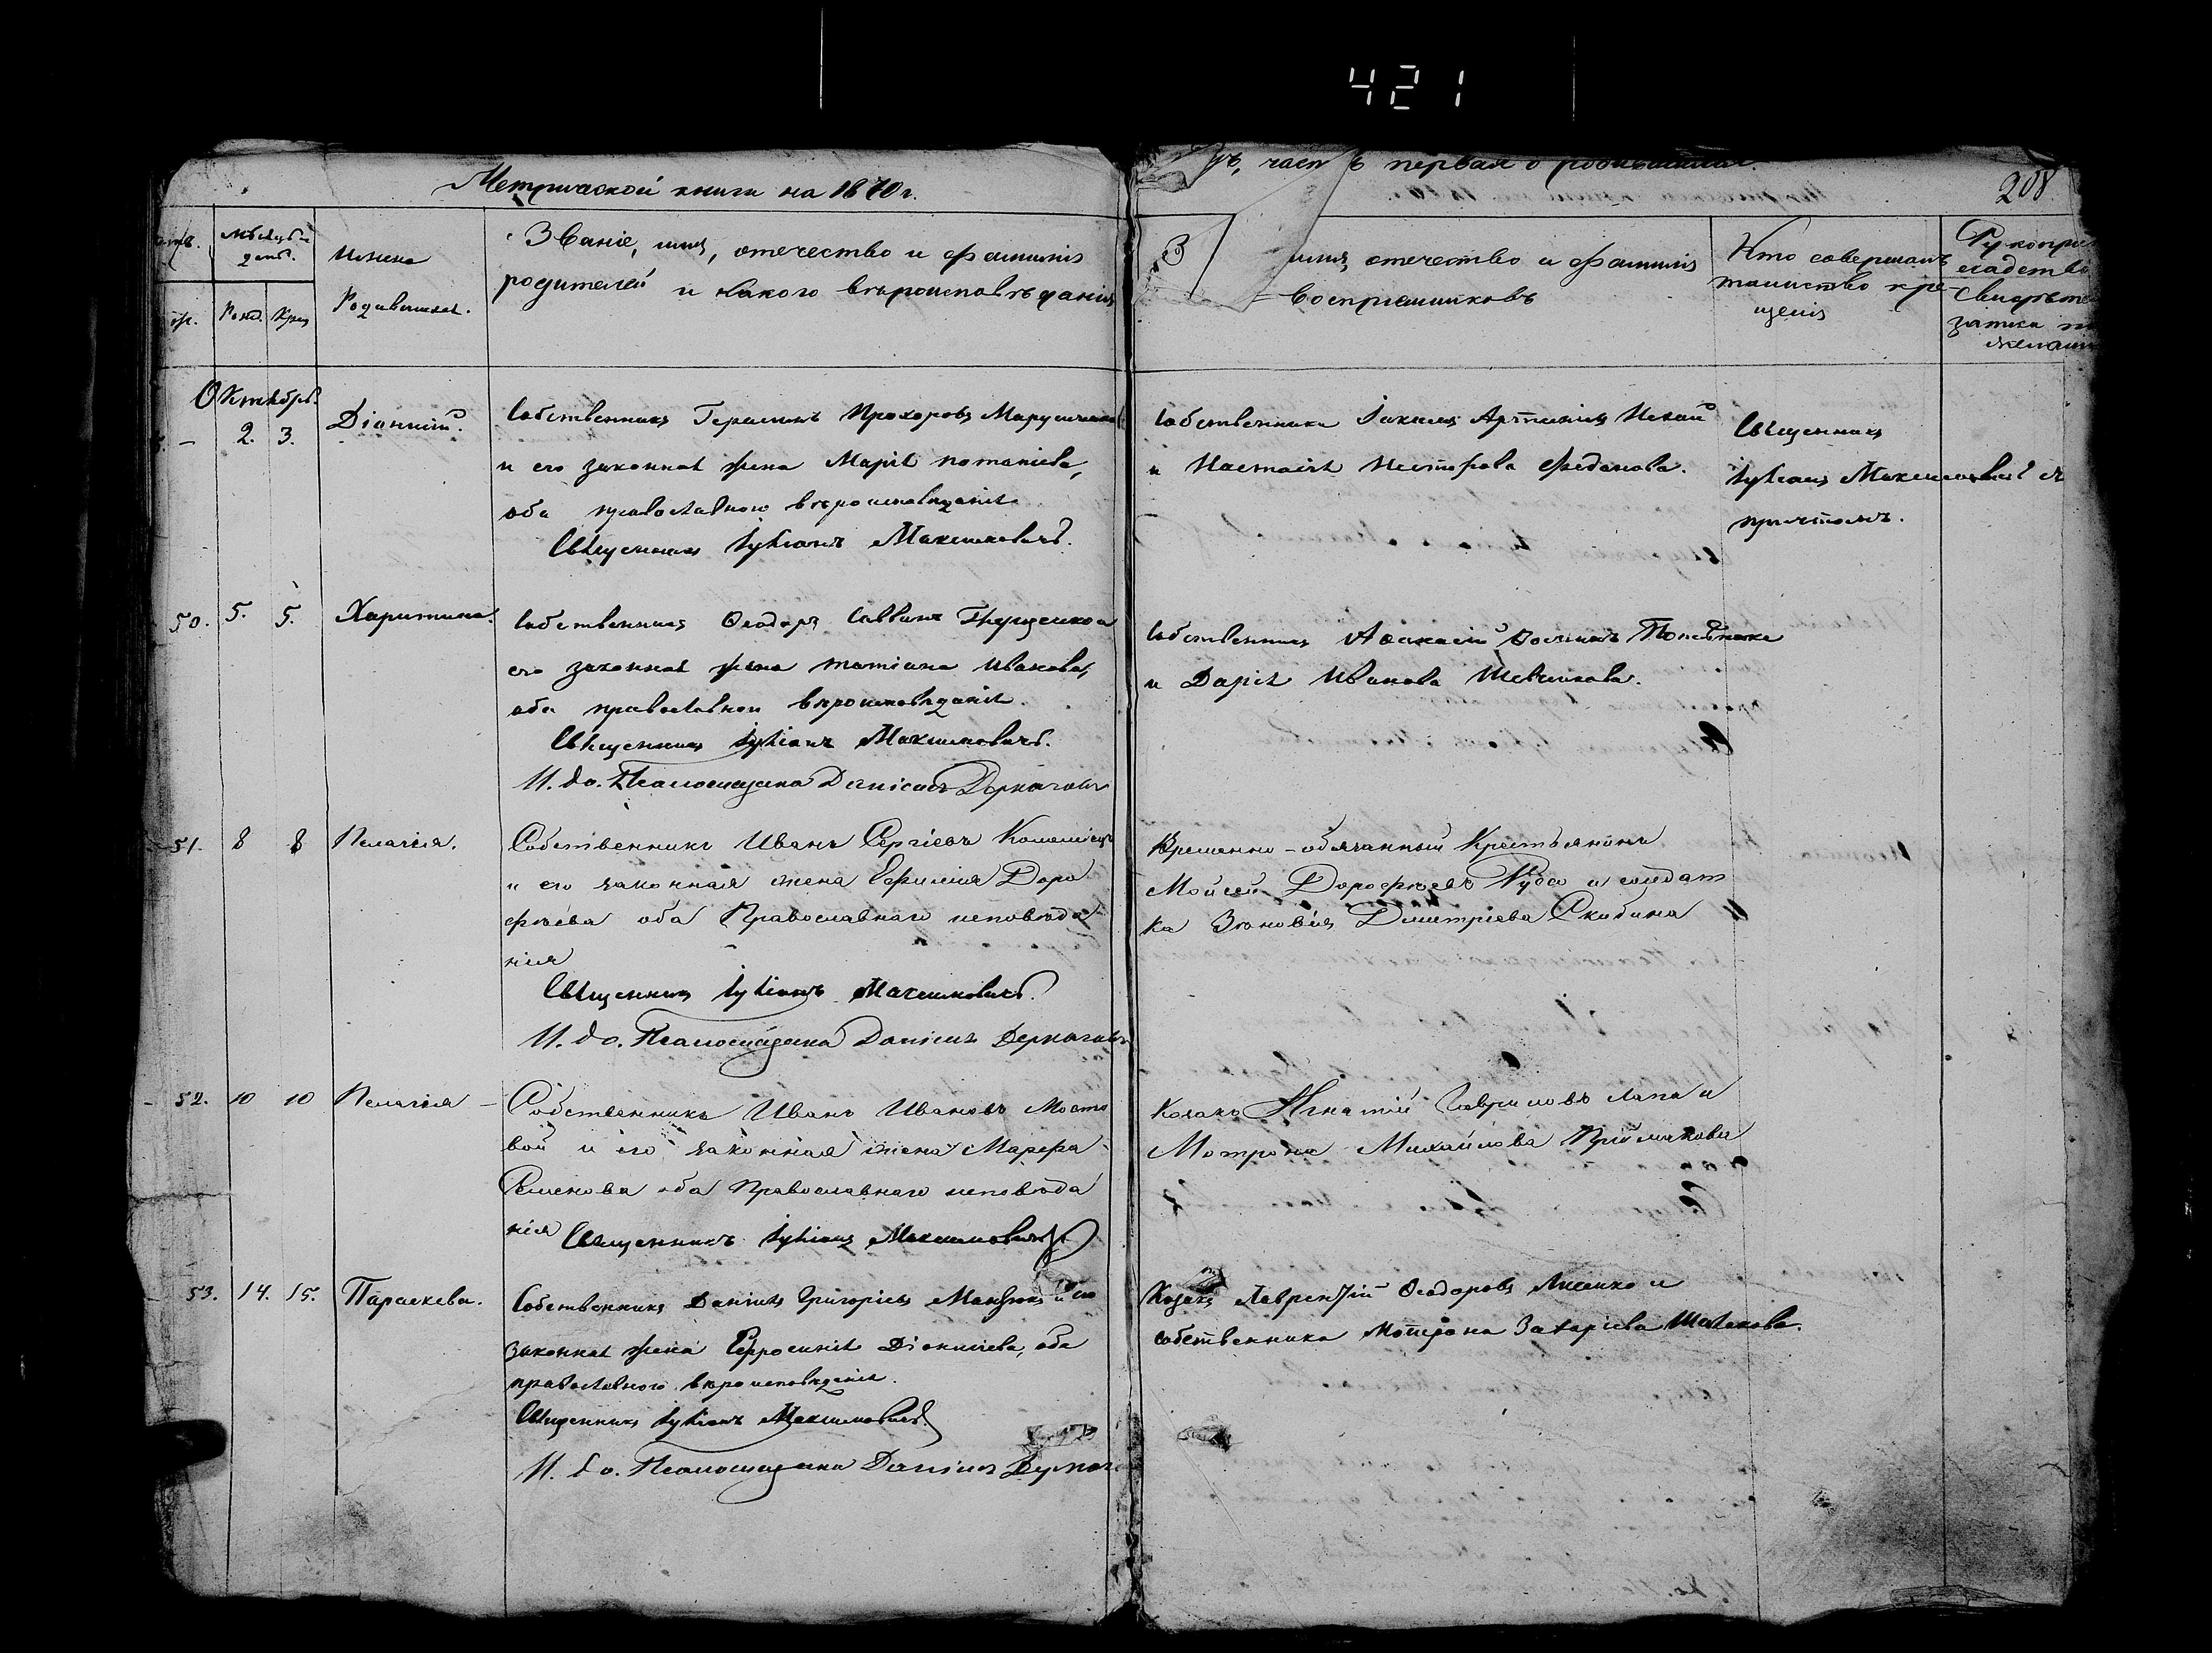 421
Метрической книги на 1870 г.
ръ, часть первая о родившихся.
208
Мѣсяцъ и день.
Рожд. Крещ.
Имена Родившихся.
Званіе, имя, отчество и фамилія
родителей и какого вѣроисповѣданія
имя, отчество и фамилія
воспріемниковъ
Кто совершалъ
таинство кре-
щенія
Октябрь.
2. 3.
Діонисій.
Собственникъ Герасимъ Прохоровъ
и его законная жена Марія
оба православного вѣроисповѣданія
Священникъ Іуліанъ Максимовичъ.
Собственники Іоакимъ
и Настасія Несторова
Священникъ
Іуліанъ Максимовичъ съ
причтомъ.
50. 5. 5. Харитина.
Собственникъ Ѳеодоръ Саввинъ
его законная жена Татіана Иванова,
оба православнои вѣроисповѣданія.
Священникъ Іуліанъ Максимовичъ.
И. до. Псаломщика Даніилъ Деркачовъ
Собственникъ
и Дарія Иванова Шевченкова.
51. 8 8 Пелагія.
Собственникъ Иванъ Сергіевъ Коломіецъ
и его законная жена Евфимія Доро
фѣева оба Православнаго исповѣда
нія
Священникъ Іуліанъ Максимовичъ.
И. до. Псаломщика Даніилъ Деркачовъ
Временно-обязанный Крестьянинъ
Мойсей Дорофѣевъ и солдат
ка Зѣновія Димитріева Скибина
52. 10 10 Пелагія
Собственникъ Иванъ Ивановъ Мосто
вой и его законная жена Марфа
Семенова оба Православнаго исповѣда
нія Священникъ Іуліанъ Максимовичъ
Козакъ Игнатій Гавриловъ Лапа и
Мотрона Михайлова Приймакова
53. 14. 15. Параскева.
Собственникъ Даніилъ Григоріевъ и его
законная жена Евфросинія Діонисіева, оба
православного вѣроисповѣданія.
Священникъ Іуліанъ Максимовичъ.
И. до. Псаломщика Даніилъ
Козакъ Лаврентій Ѳеодоровъ Лисенко и
собственника Мотрона Захаріева